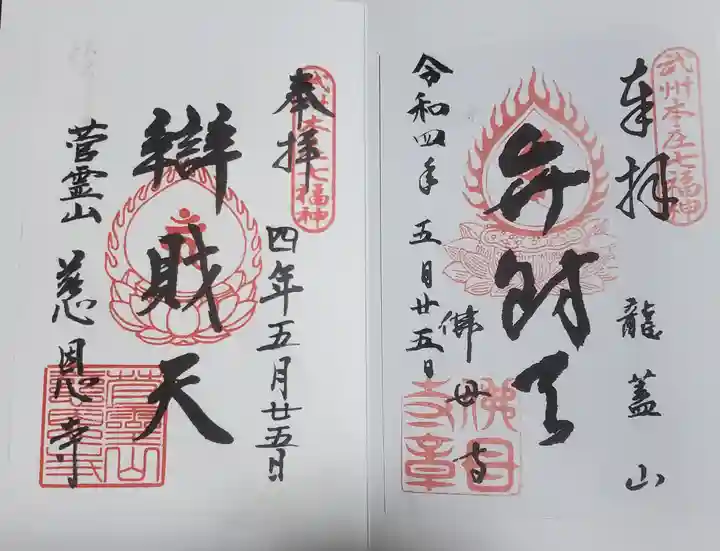 武州本庄七福神
奉拝
龍蓋山
弁財天
佛母寺
令和四年五月廿五日
佛母寺章
武州本庄七福神
奉拝
四年五月廿五日
辯財天
菅霊山
慈恩寺